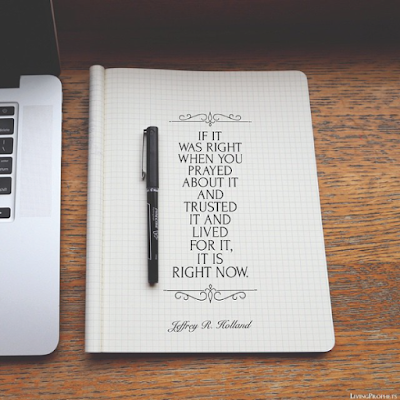 IF IT
WAS RIGHT
WHEN YOU
PRAYED
ABOUT IT
AND
TRUSTED
IT AND
LIVED
FOR IT,
IT IS
RIGHT NOW.
Jeffrey R. Holland
LIVINGPROPHETS